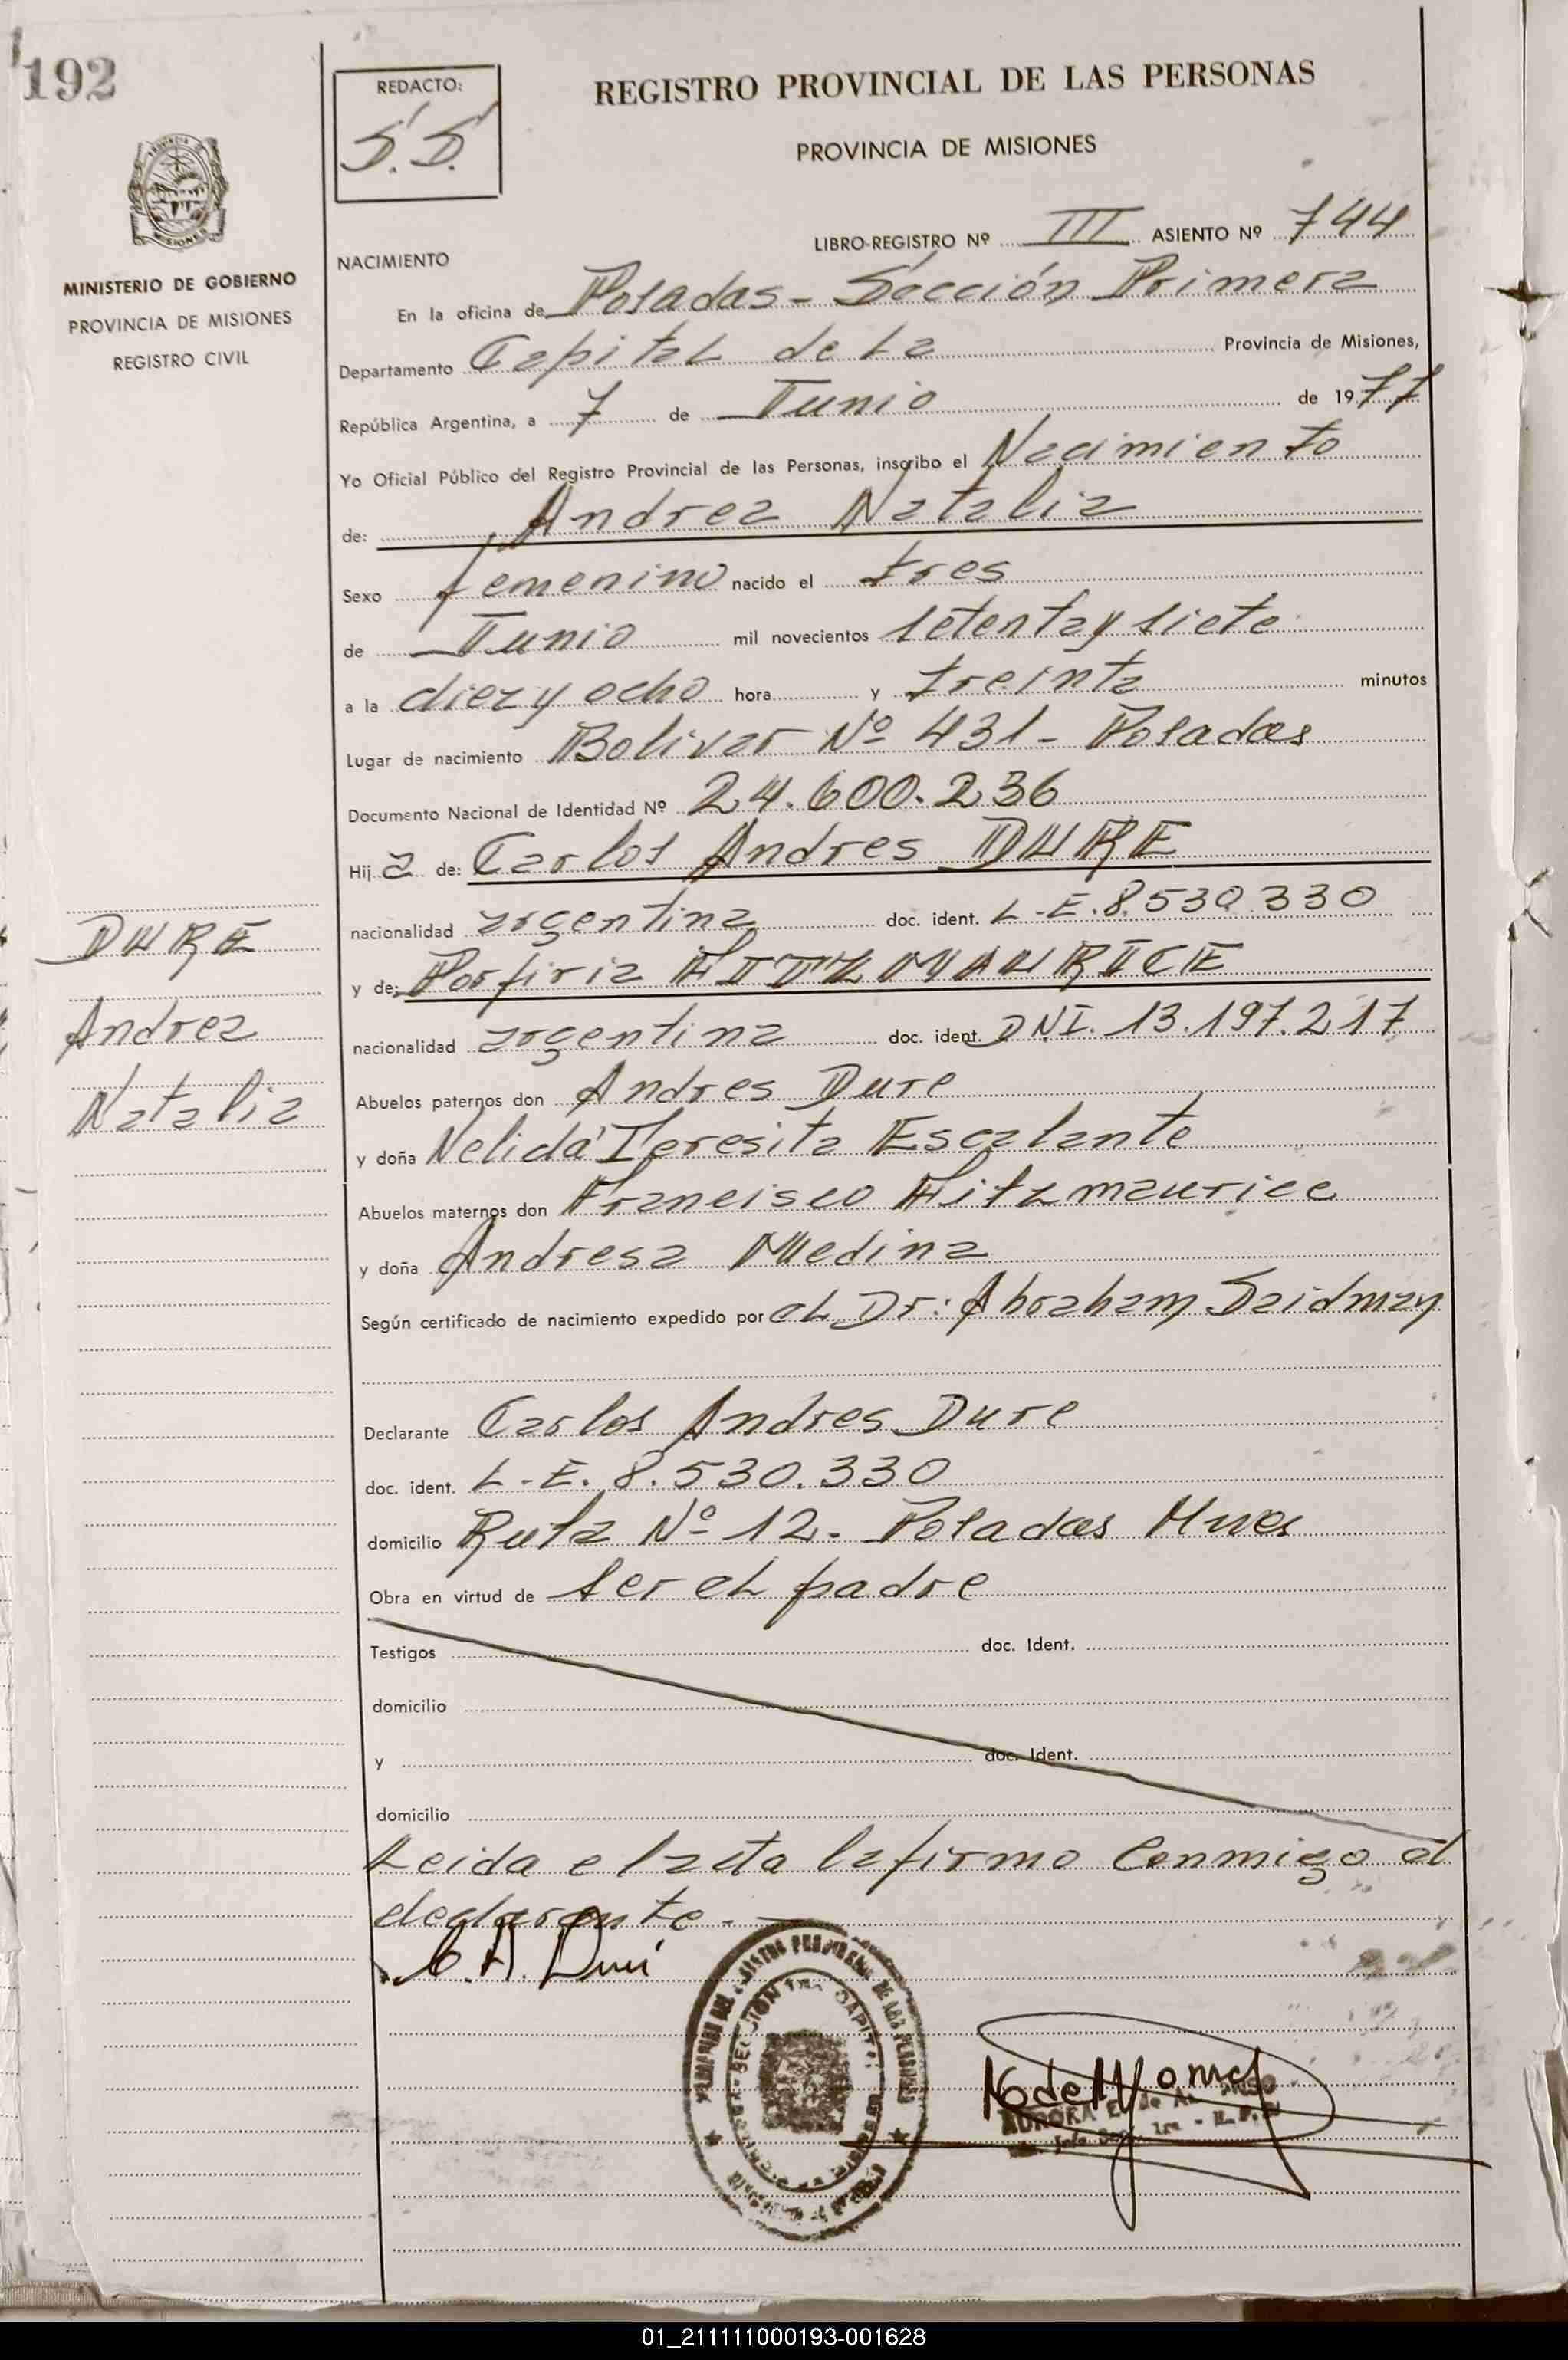 192
REDACTO:
S.S.
REGISTRO PROVINCIAL DE LAS PERSONAS
PROVINCIA DE MISIONES
MINISTERIO DE GOBIERNO
PROVINCIA DE MISIONES
REGISTRO CIVIL
LIBRO-REGISTRO Nº III ASIENTO Nº 744
NACIMIENTO
En la oficina de Posadas - Sección Primera
Departamento Capital de La Provincia de Misiones,
República Argentina, a 7 de Junio de 1977
Yo Oficial Público del Registro Provincial de las Personas, inscribo el Nacimiento
de: Andrea Natalia
Sexo femenino nacido el tres
de Junio mil novecientos setenta y siete
a la diez y ocho hora y treinta minutos
Lugar de nacimiento Bolivar Nº 431 - Posadas
Documento Nacional de Identidad Nº 24.600.236
Hij a de: Carlos Andres DURE
nacionalidad argentina doc. ident. L.E. 8.530.330
y de: Porfiria FITZMAURICE
nacionalidad argentina doc. ident. DNI. 13.197.217
Abuelos paternos don Andres Dure
y doña Nelida Teresita Escalante
Abuelos maternos don Francisco Fitzmaurice
y doña Andresa Medina
Según certificado de nacimiento expedido por el Dr: Abraham Saidman
Declarante Carlos Andres Dure
doc. ident. L.E. 8.530.330
domicilio Ruta Nº 12 - Posadas Mnes
Obra en virtud de ser el padre
Testigos doc. Ident.
domicilio
y doc. Ident.
domicilio
Leida el acta la firmo conmigo el
declarante.-
C.A. Duré
DURE
Andrea
Natalia
AURORA E. de
01_211111000193-001628